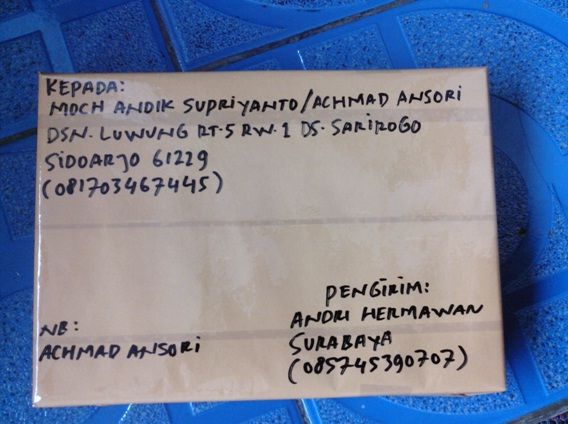 KEPADA:
MOCH ANDIK SUPRIYANTO/ACHMAD ANSORI
DSN. LUWUNG RT.5 RW.1 DS. SARIROGO
SIDOARJO 61229
(081703467445)
PENGIRIM:
ANDRI HERMAWAN
SURABAYA
(085745390707)
NB:
ACHMAD ANSORI